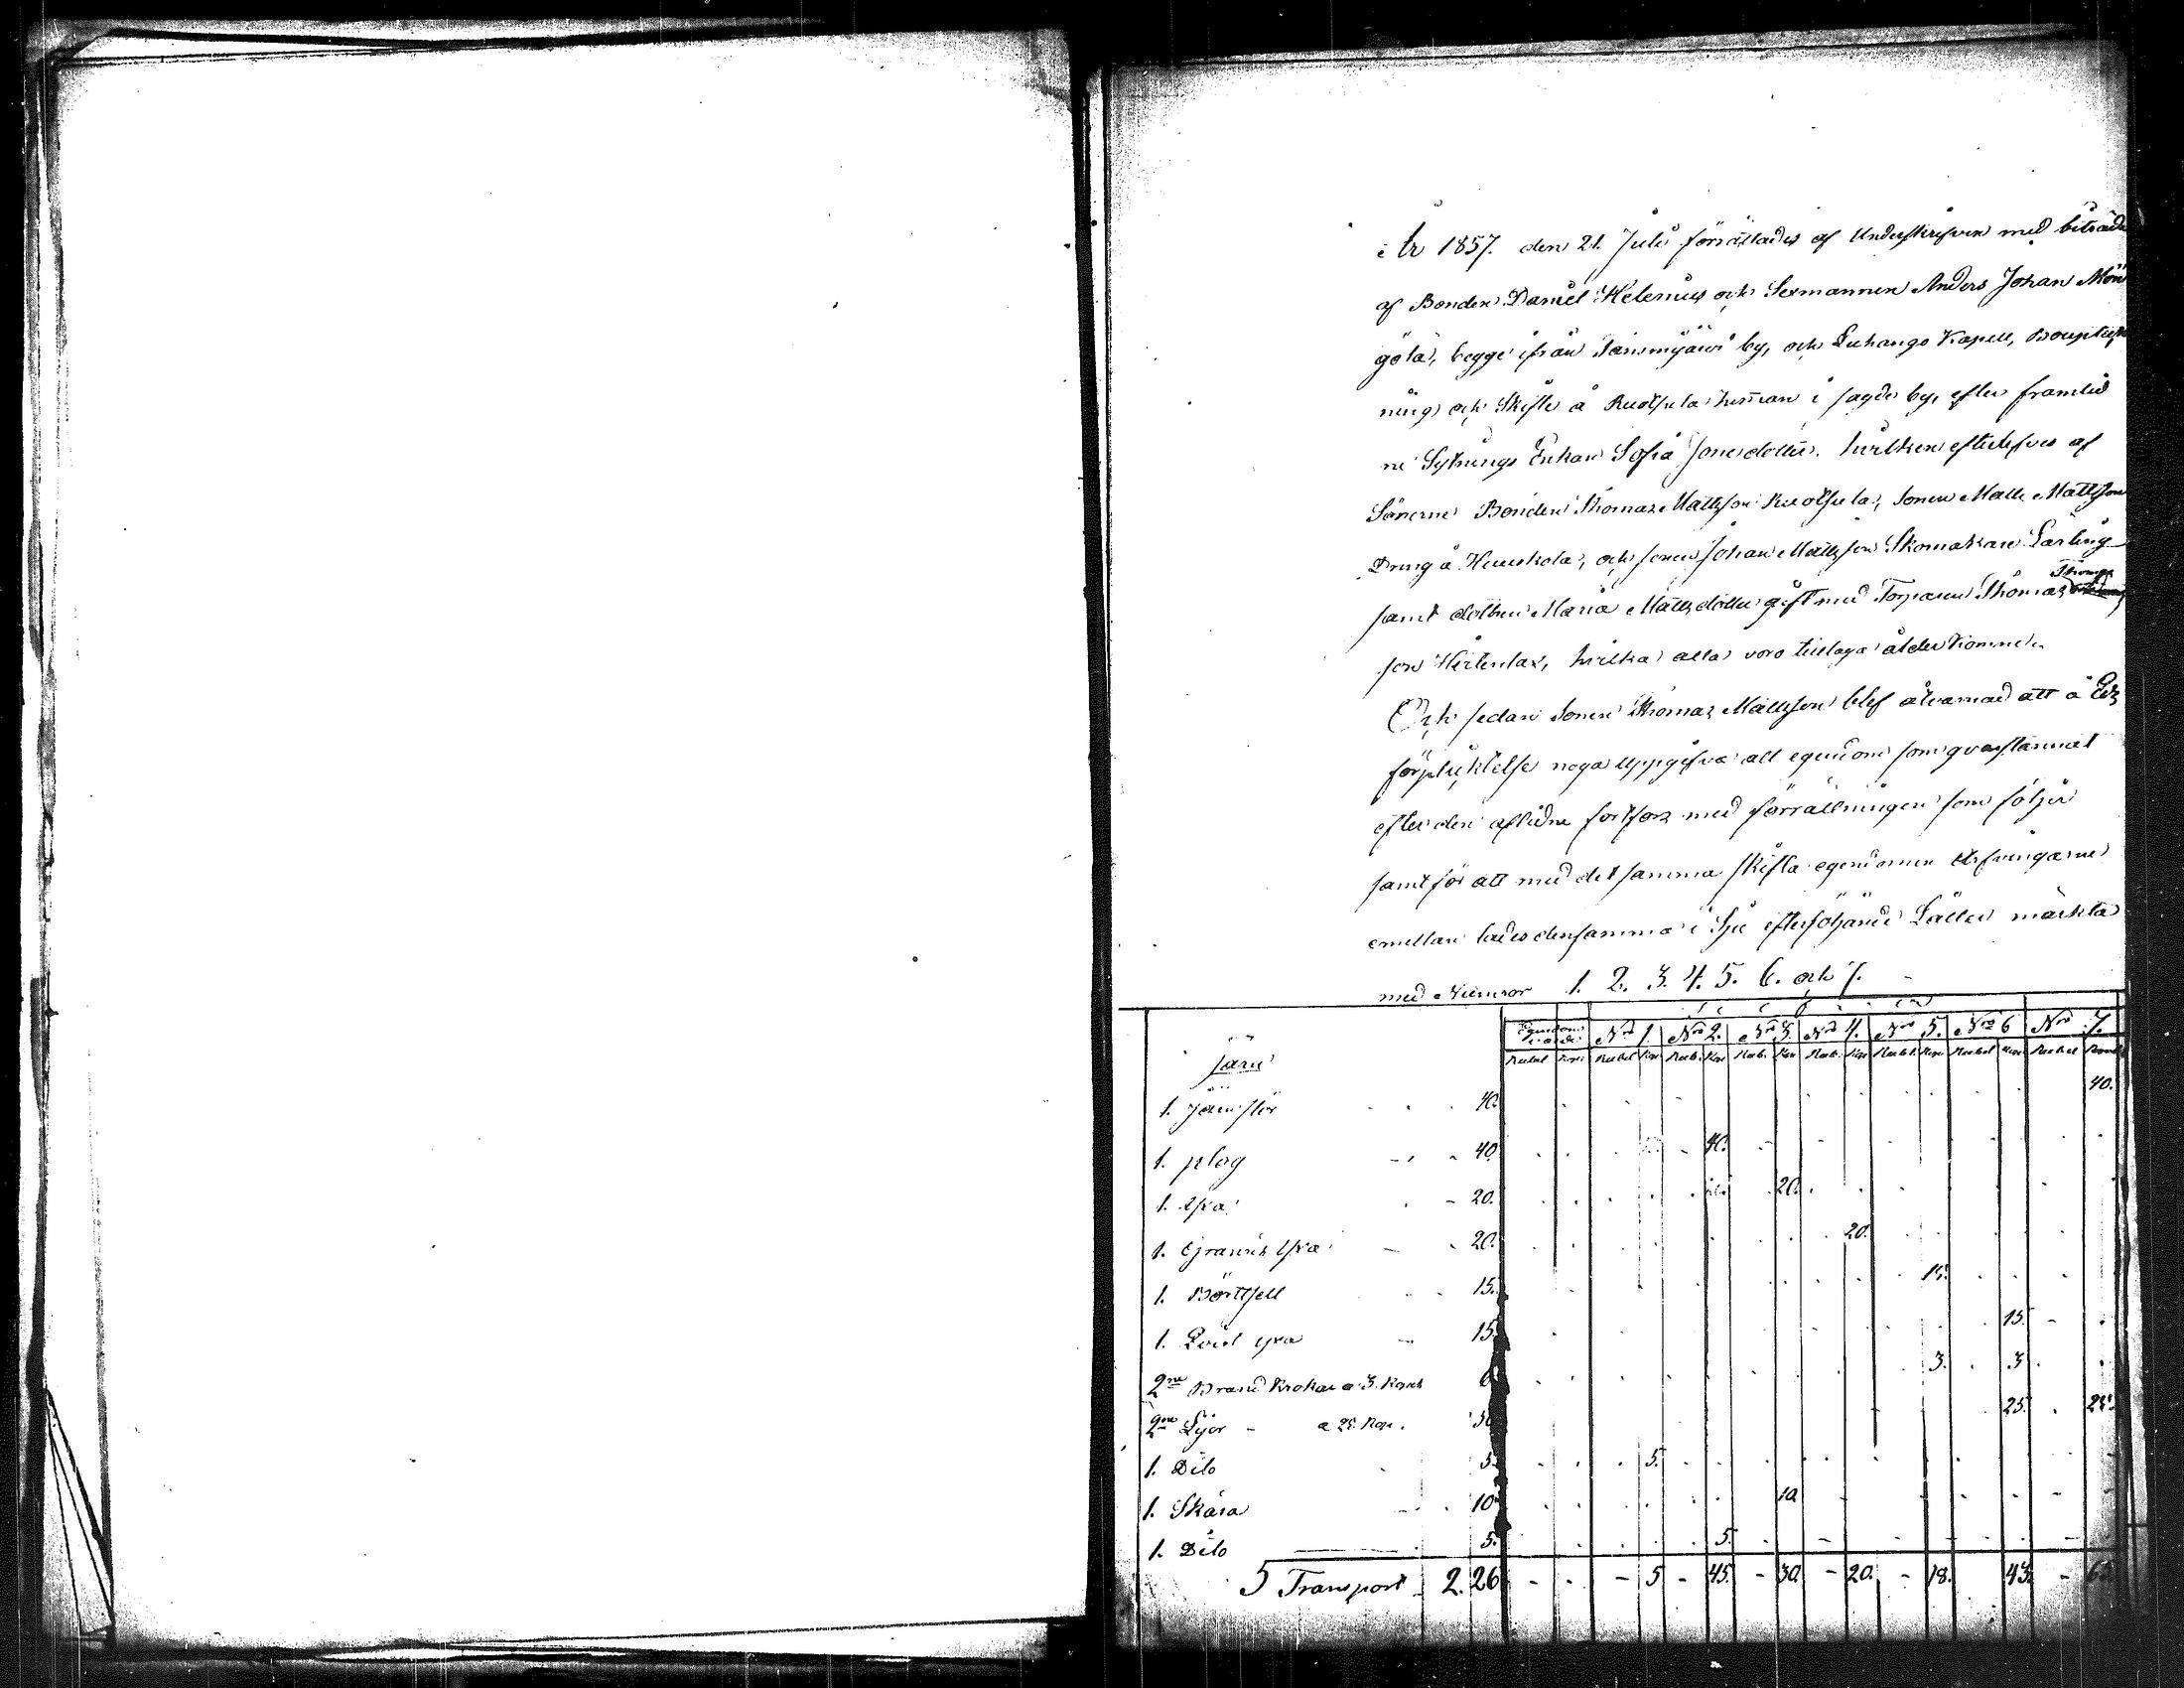 År 1857. den 21 Juli förrättades af Underskrifven med biträde
af Bonden Daniel Helenius och Sexmannen Anders Johan Mön
götä, begge ifrån by, och Luhango Kapell, Bouptek
ning och Skifte å Ruotsula heman i sagde by, efter framled
ne Sytnings Enkan Sofia Jonsdotter. hvilken efterlefves af
Sönerne Bonden Thomas Mattsson Ruotsula, Sonen Matts Mattsson
Dreng å Heuskola, och Sonen Johan Mattsson Skomakare Lärling
samt dottren Maria Mattsdotter gift med Torparen Thomas Thomas
son Hirtenlax, hvilka alla voro tillaga ålder komne.
Och sedan Sonen Thomas Mattsson blef åtvarnad att å Eds
förplicktelse noga uppgifva all egendom som qvarstannat
efter den aflidne fortfors med förrättningen som följer
samt för att med det samma skifta egendomen Arfvingarne
emellan lades densamma i Sju efterföljande Lotter märkta
med Numror 1. 2. 3. 4. 5. 6. och 7.
Egendoms värde Nro 1. Nro 2. Nro 3. Nro 4. Nro 5. Nro 6 Nro 7.
Järn Rubel Kop. Rubel Kop Rub. Kop Rub. Kop Rub. Kop Rubl. Kop Rubel Kop. Rubel
1. Jern stör - - - 40. 40.
1. plog - - - 40. 40.
1. Yxa - 20. 20.
1. yxa - 20. 20.
1. 15. 15.
1. yxa - 15. 15.
2ne Brand Krokar a 3. Kopek 6 3. 3
2ne Lijor - a 25. Kop. 50 25. 25.
1. Dito 5. 5.
1. Skära - 10. 10
1. Dito 5. 5.
Transport 2. 26 - - - 5 - 45. - 30. - 20. - 18. 43. - 65.